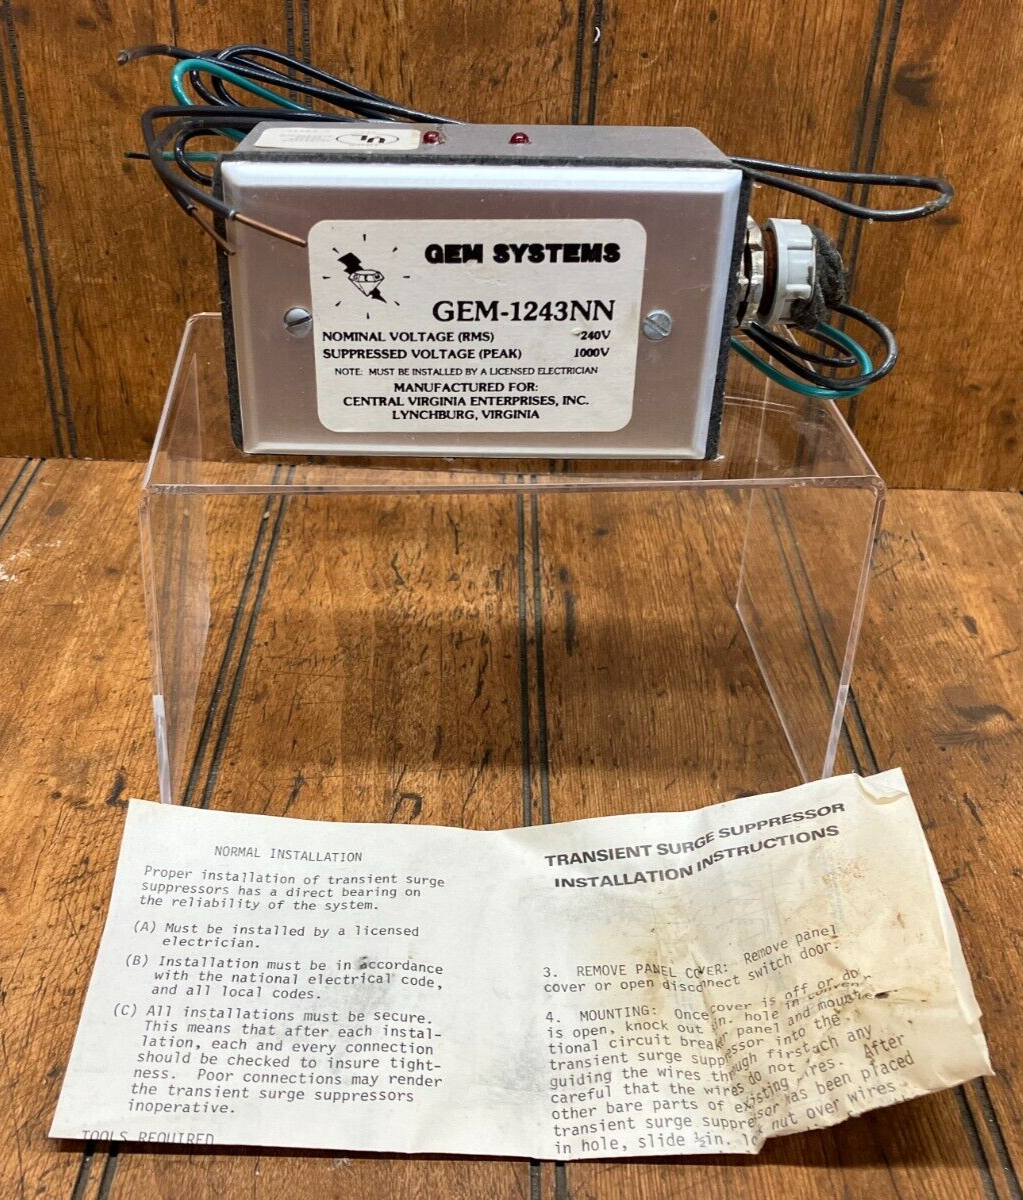 UL
GEM SYSTEMS
GEM-1243NN
NOMINAL VOLTAGE (RMS) 240V
SUPPRESSED VOLTAGE (PEAK) 1000V
NOTE: MUST BE INSTALLED BY A LICENSED ELECTRICIAN
MANUFACTURED FOR:
CENTRAL VIRGINIA ENTERPRISES, INC.
LYNCHBURG, VIRGINIA
NORMAL INSTALLATION
Proper installation of transient surge
suppressors has a direct bearing on
the reliability of the system.
(A) Must be installed by a licensed
electrician.
(B) Installation must be in accordance
with the national electrical code,
and all local codes.
(C) All installations must be secure.
This means that after each instal-
lation, each and every connection
should be checked to insure tight-
ness. Poor connections may render
the transient surge suppressors
inoperative.
TOOLS REQUIRED
TRANSIENT SURGE SUPPRESSOR
INSTALLATION INSTRUCTIONS
3. REMOVE PANEL COVER: Remove panel
cover or open disconnect switch door.
4. MOUNTING: Once cover is off or do
is open, knock out in. hole in conven
tional circuit breaker panel and mount
transient surge suppressor into the
guiding the wires through first
careful that the wires do not any
other bare parts of existing wires. After
transient surge suppressor has been placed
in hole, slide ½in. lock nut over wires